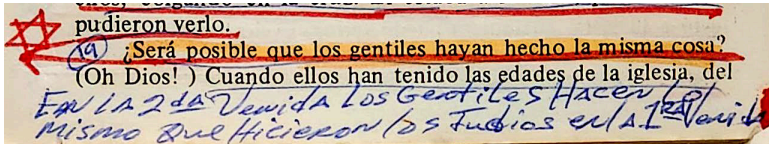 pudieron verlo.
19 ¿Será posible que los gentiles hayan hecho la misma cosa?
(Oh Dios! ) Cuando ellos han tenido las edades de la iglesia, del
En la 2da Venida Los Gentiles Hacen Lo
Mismo Que Hicieron los Judios en la 1ra Venida